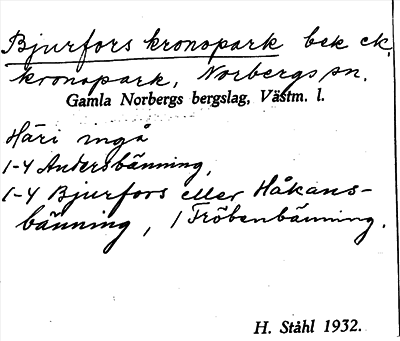 Bjurfors kronopark bek ek.
kronopark, Norbergs sn.
Gamla Norbergs bergslag, Västm. l.
Häri ingå
1-4 Andersbänning,
1-4 Bjurfors eller Håkans-
bänning, 1 Fröbenbänning.
H. Ståhl 1932.